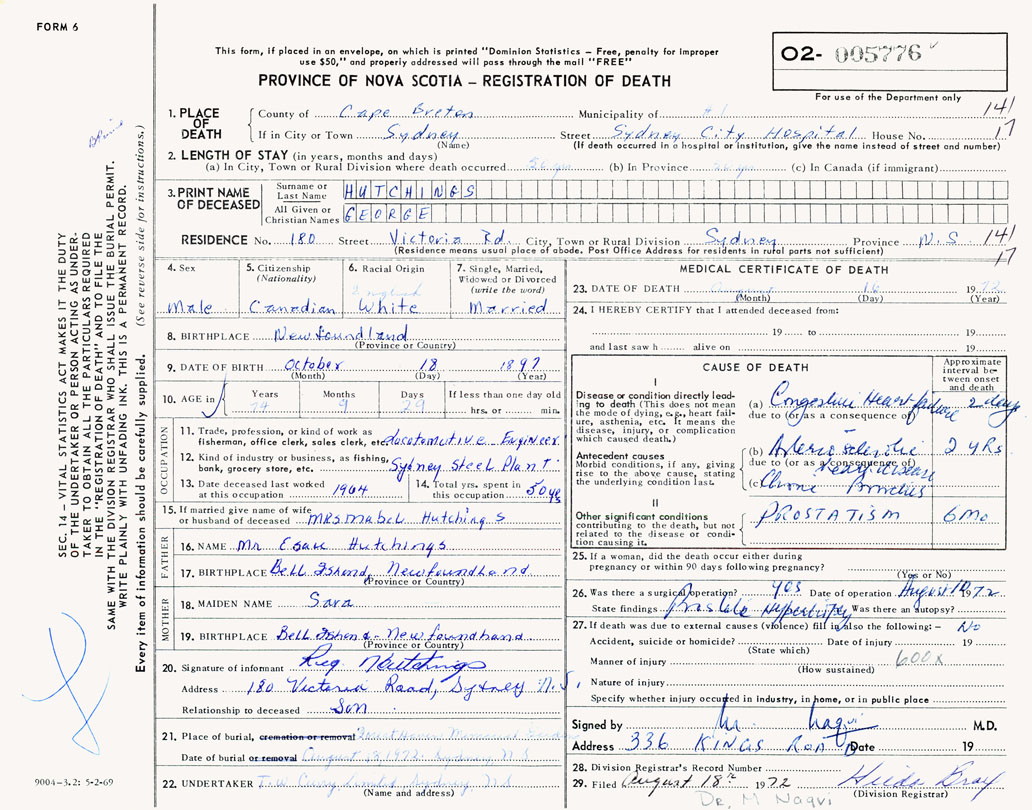 FORM 6
This form, if placed in an envelope, on which is printed "Dominion Statistics – Free, penalty for improper
use $50," and properly addressed will pass through the mail "FREE"
PROVINCE OF NOVA SCOTIA – REGISTRATION OF DEATH
02- 005776
For use of the Department only
141
17
1. PLACE OF DEATH
County of Cape Breton Municipality of # 1
If in City or Town Sydney Street Sydney City Hospital House No.
(Name) (If death occurred in a hospital or institution, give the name instead of street and number)
2. LENGTH OF STAY (in years, months and days)
(a) In City, Town or Rural Division where death occurred (b) In Province (c) In Canada (if immigrant)
3. PRINT NAME OF DECEASED
Surname or Last Name HUTCHINGS
All Given or Christian Names GEORGE
RESIDENCE No. 180 Street Victoria Rd. City, Town or Rural Division Sydney Province N.S. 141
17
(Residence means usual place of abode. Post Office Address for residents in rural parts not sufficient)
4. Sex
Male
5. Citizenship
(Nationality)
Canadian
6. Racial Origin
England
White
7. Single, Married,
Widowed or Divorced
(write the word)
Married
8. BIRTHPLACE Newfoundland
(Province or Country)
9. DATE OF BIRTH October 18 1897
(Month) (Day) (Year)
10. AGE in
Years Months Days If less than one day old
74 9 29 hrs. or min.
OCCUPATION
11. Trade, profession, or kind of work as
fisherman, office clerk, sales clerk, etc. Locotomotive Engineer
12. Kind of industry or business, as fishing,
bank, grocery store, etc. Sydney Steel Plant
13. Date deceased last worked
at this occupation 1964
14. Total yrs. spent in
this occupation 50 yrs
15. If married give name of wife
or husband of deceased Mrs Mabel Hutchings
FATHER
16. NAME Mr. Esau Hutchings
17. BIRTHPLACE Bell Island, Newfoundland
(Province or Country)
MOTHER
18. MAIDEN NAME Sara
19. BIRTHPLACE Bell Island - Newfoundland
(Province or Country)
20. Signature of informant Reg Hutchings
Address 180 Victoria Road, Sydney N.S.
Relationship to deceased Son
21. Place of burial, cremation or removal Memorial
Date of burial or removal August 1972 Sydney, N S
22. UNDERTAKER T.W. Curry Limited Sydney N S
(Name and address)
MEDICAL CERTIFICATE OF DEATH
23. DATE OF DEATH August 16 1972
(Month) (Day) (Year)
24. I HEREBY CERTIFY that I attended deceased from:
19 to 19
and last saw h alive on 19
CAUSE OF DEATH
Approximate interval between onset and death
I
Disease or condition directly leading
to death (This does not mean
the mode of dying, e.g., heart failure,
asthenia, etc. It means the
disease, injury, or complication
which caused death.)
(a) Congestive Heart failure 2 days
due to (or as a consequence of
Antecedent causes
Morbid conditions, if any, giving
rise to the above cause, stating
the underlying condition last.
(b) Arteriosclerotic 2 yrs
due to (or as a consequence of
heart disease
(c) Chronic Bronchitis
II
Other significant conditions
contributing to the death, but not
related to the disease or condition
causing it.
PROSTATISM 6 Mo
25. If a woman, did the death occur either during
pregnancy or within 90 days following pregnancy?
(Yes or No)
26. Was there a surgical operation? yes Date of operation August 10 1972
State findings Prostate Hypertrophy Was there an autopsy?
27. If death was due to external causes (violence) fill in also the following: – No
Accident, suicide or homicide? Date of injury 19
(State which)
600X
Manner of injury
(How sustained)
Nature of injury
Specify whether injury occurred in industry, in home, or in public place
Signed by M. Naqvi M.D.
Address 336 KINGS ROAD Date 19
28. Division Registrar's Record Number
29. Filed August 18th 1972
(Division Registrar)
Dr. M Naqvi
SEC. 14 – VITAL STATISTICS ACT MAKES IT THE DUTY
OF THE UNDERTAKER OR PERSON ACTING AS UNDERTAKER
TO OBTAIN ALL THE PARTICULARS REQUIRED
IN THE "REGISTRATION OF DEATH" AND TO FILE THE
SAME WITH THE DIVISION REGISTRAR WHO SHALL ISSUE THE BURIAL PERMIT.
WRITE PLAINLY WITH UNFADING INK. THIS IS A PERMANENT RECORD.
Every item of information should be carefully supplied. (See reverse side for instructions.)
9004-3.2: 5-2-69